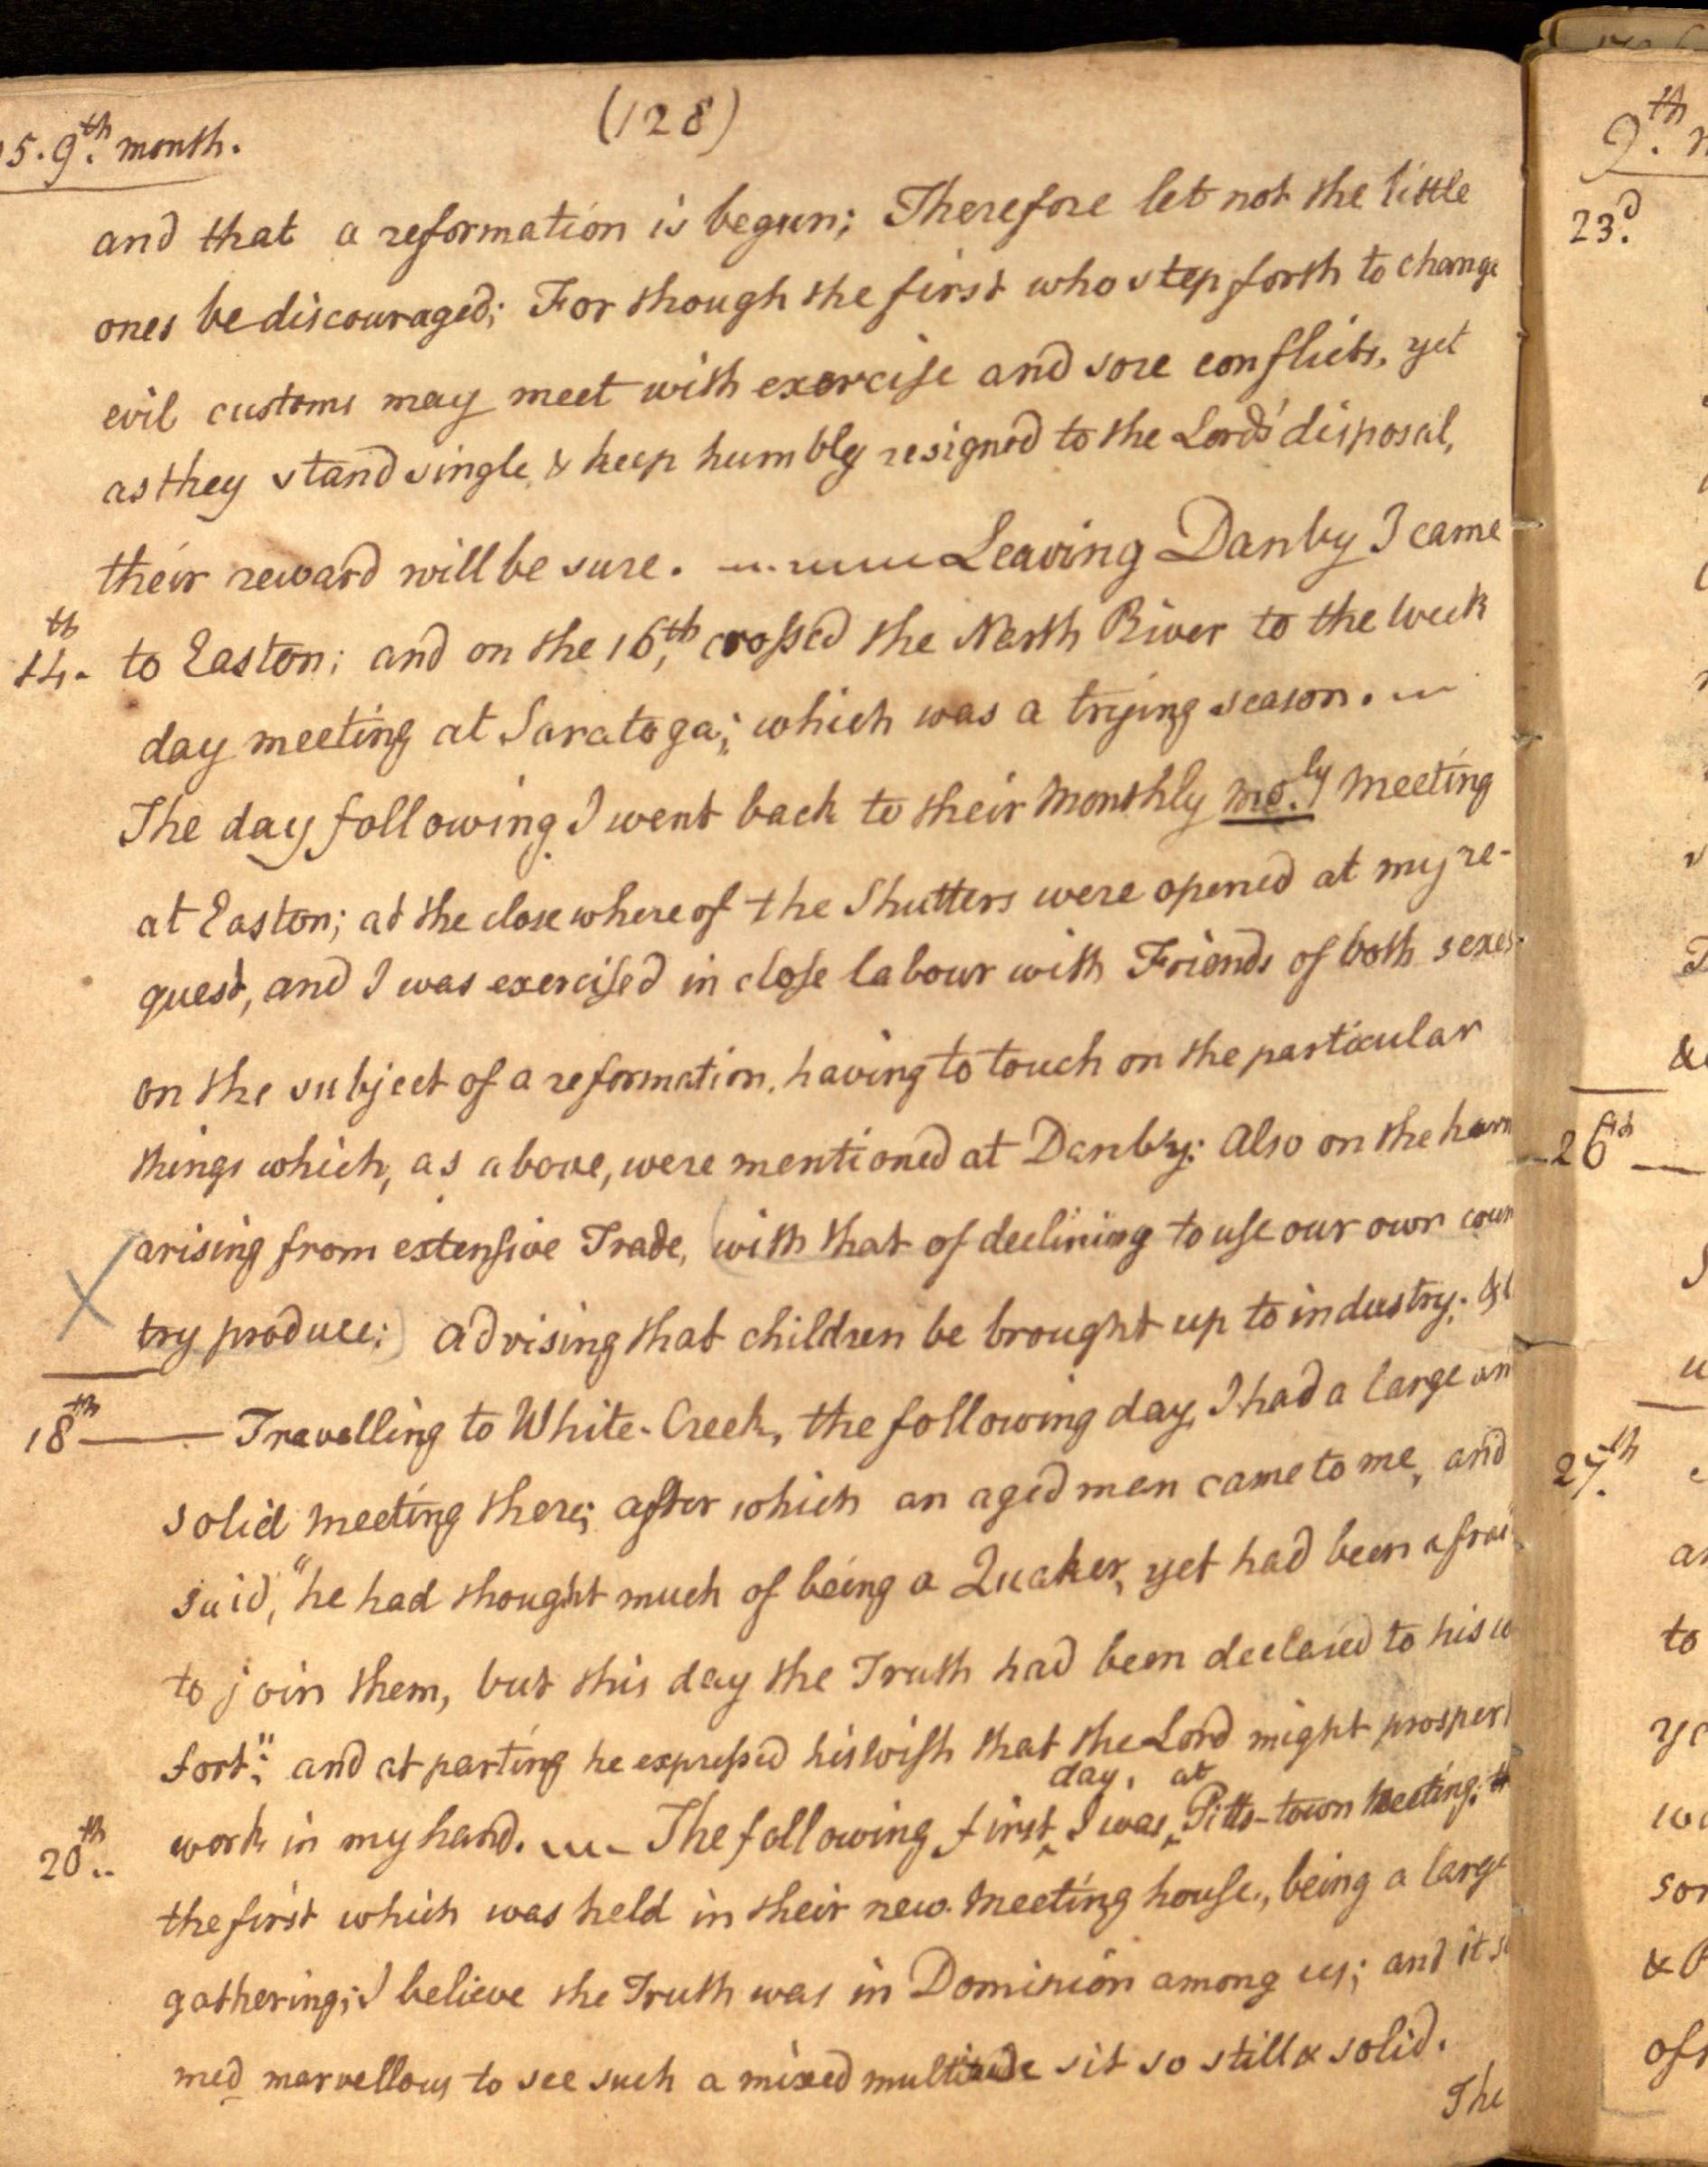 (128)
5. 9th. month.
and that a reformation is begun; Therefore let not the little
ones be discouraged; For though the first who step forth to change
evil customs may meet with exercise and sore conflicts, yet
as they stand single, & keep humbly resigned to the Lord's disposal,
their reward will be sure. Leaving Danby I came
14th. to Easton; and on the 16th, crossed the North River to the week
day meeting at Saratoga; which was a trying season.
The day following I went back to their Monthly mo.ly Meeting
at Easton; at the close whereof the Shutters were opened at my re-
quest, and I was exercised in close labour with Friends of both sexes
on the subject of a reformation, having to touch on the particular
things which, as above, were mentioned at Danby: Also on the harm
arising from extensive Trade, (with that of declining to use our own coun
try produce:) advising that children be brought up to industry; &c
18th Travelling to White-Creek, the following day, I had a large an
solid Meeting there; after which an aged man came to me, and
said, "he had thought much of being a Quaker, yet had been afrai
to join them, but this day the Truth had been declared to his co
fort"; and at parting he expressed his wish that the Lord might prosper
20th.. work in my hand. The following first day, I was at Pitts-town Meeting;
the first which was held in their new Meeting house, being a large
gathering; I believe the Truth was in Dominion among us; and it se
med marvellous to see such a mixed multitude sit so still & solid.
The
9th. m
23d.
&
26th
27th.
to